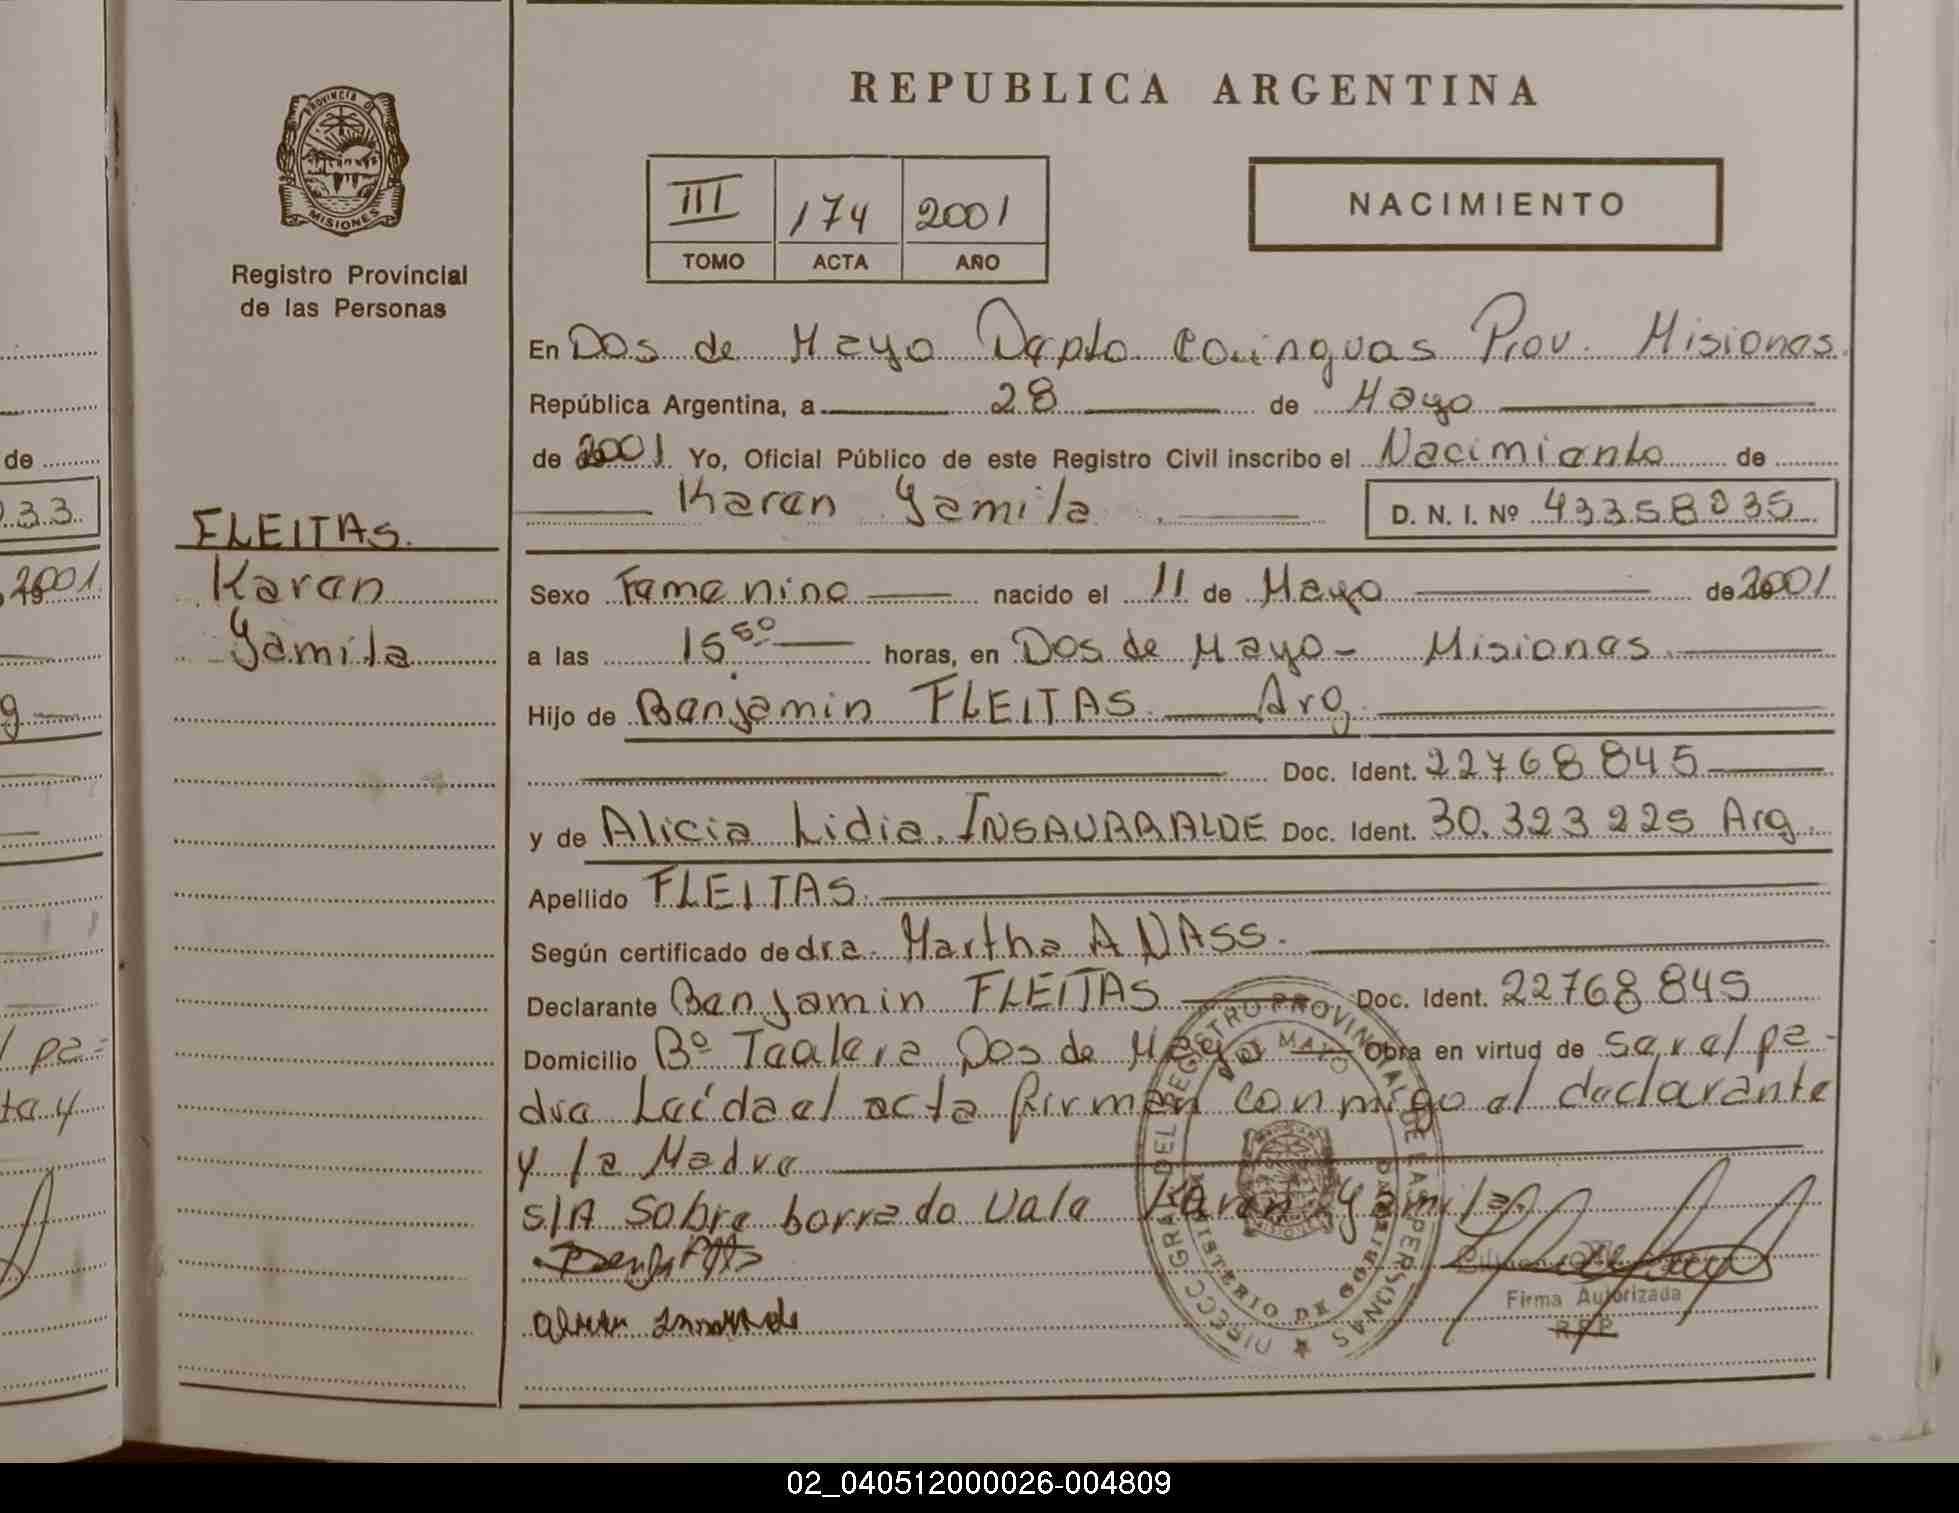 REPUBLICA ARGENTINA
PROVINCIA DE
MISIONES
Registro Provincial
de las Personas
III 174 2001
TOMO ACTA AÑO
NACIMIENTO
En Dos de Mayo Depto Cainguas Prov. Misiones.
República Argentina, a 28 de Mayo
de 2001 Yo, Oficial Público de este Registro Civil inscribo el Nacimiento de
Karen Yamila D. N. I. Nº 43358035
FLEITAS.
Karen
Yamila
Sexo Femenino nacido el 11 de Mayo de 2001
a las 15 50 horas, en Dos de Mayo - Misiones
Hijo de Benjamin FLEITAS Arg.
Doc. Ident. 22768845
y de Alicia Lidia INSAURRALDE Doc. Ident. 30.323225 Arg.
Apellido FLEITAS.
Según certificado de dra. Martha A NASS.
Declarante Benjamin FLEITAS Doc. Ident. 22768845
Domicilio Bº Tealera Dos de Mayo Obra en virtud de ser el pa-
dre Leída el acta firman conmigo el declarante
y la Madre
S/A Sobre borrado Vale Karen Yamila.
Firma Autorizada
R.P.P.
DIRECC. GRAL. DEL REGISTRO PROVINCIAL DE LAS PERSONAS
MINISTERIO DE GOBIERNO
de
33
2001
g
pa-
ta y
02_040512000026-004809